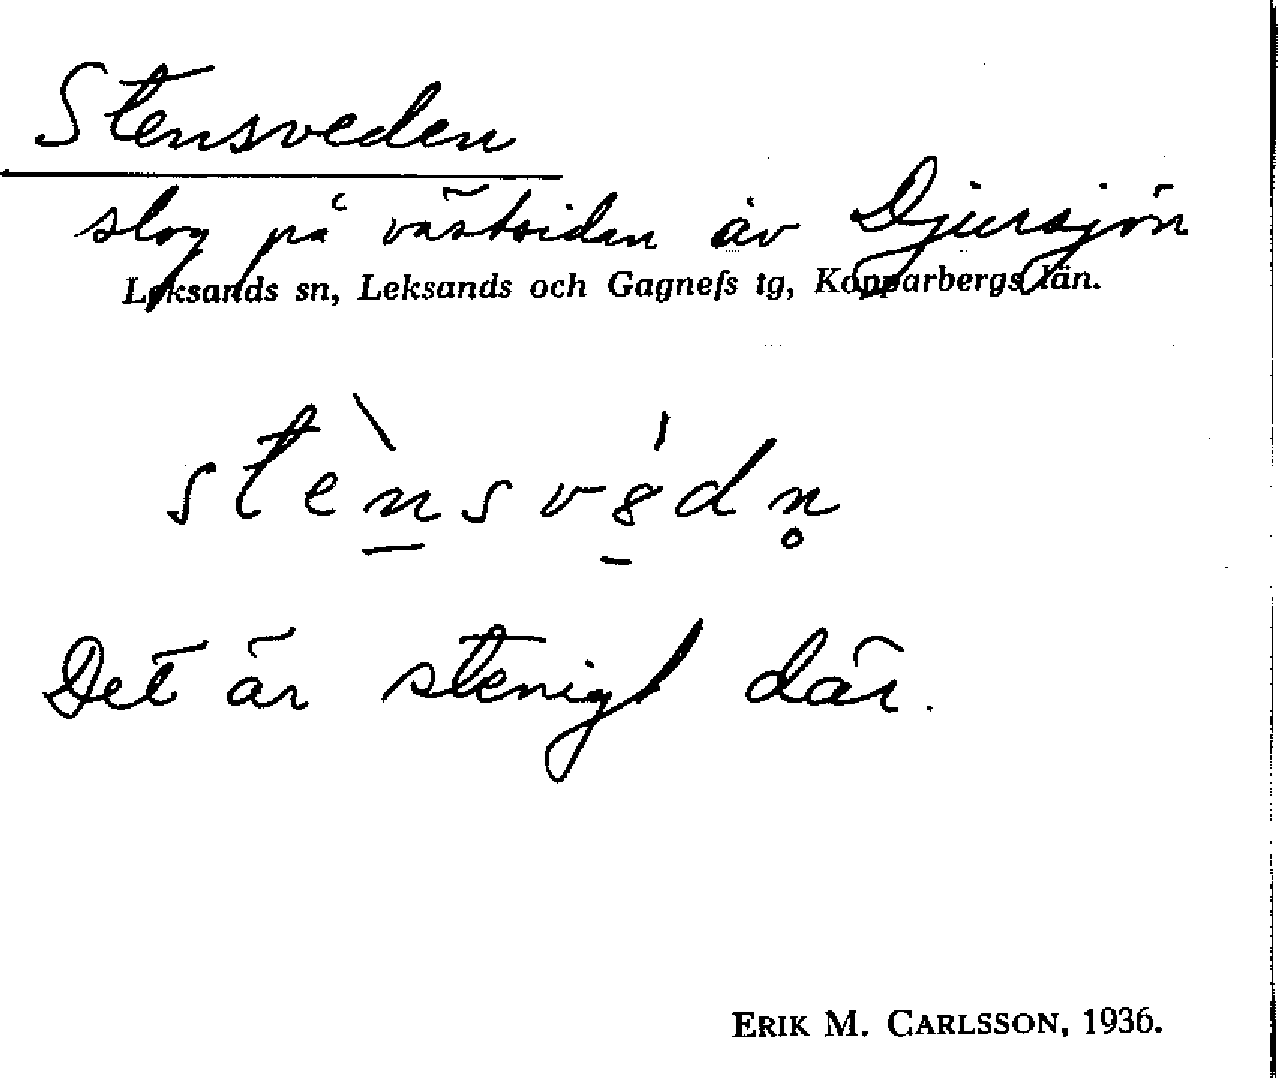 Stensveden
slog på västsidan av Djursjön
Leksands sn, Leksands och Gagnefs tg, Kopparbergs län.
stèn̲sv8̲́dn̥
Det är stenigt där.
ERIK M. CARLSSON, 1936.